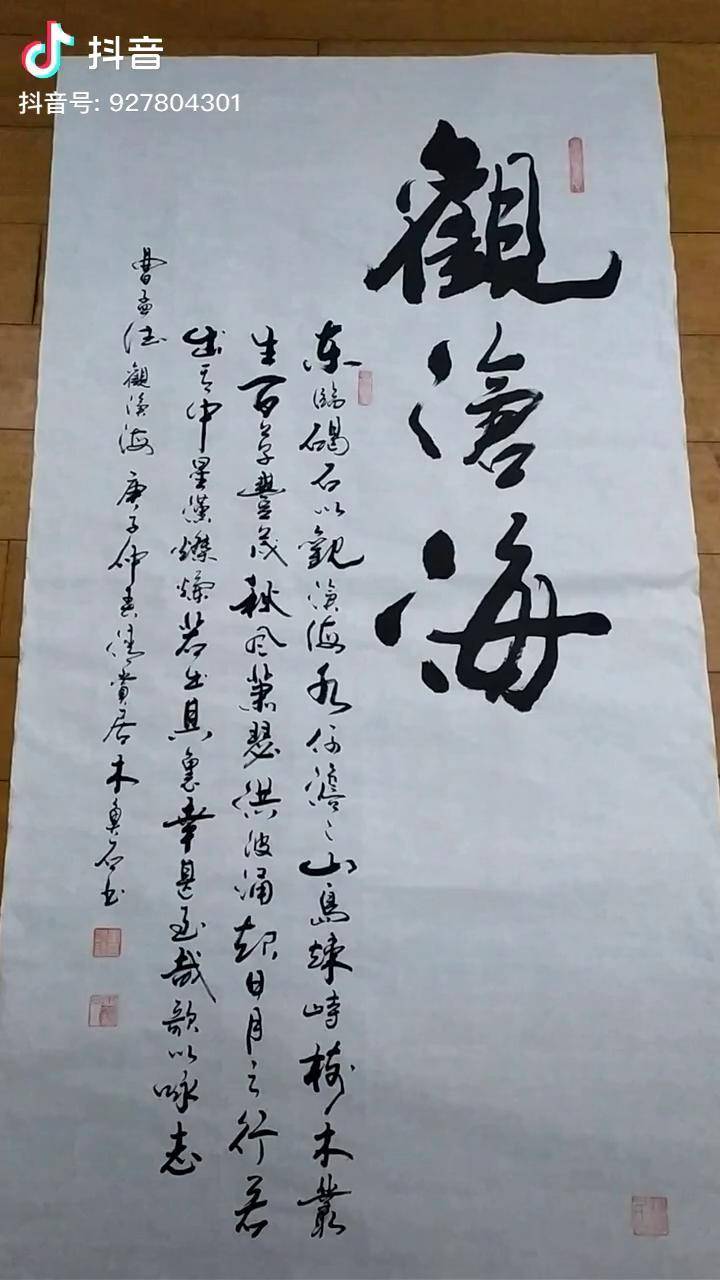 抖音
抖音号: 927804301
觀滄海
东臨碣石以觀滄海水何澹々山島竦峙树木叢
生百草豐茂秋风蕭瑟洪波涌起日月之行若
出其中星漢燦爛若出其裏幸甚至哉歌以咏志
曹孟德觀滄海庚子仲春賞居木魚石书